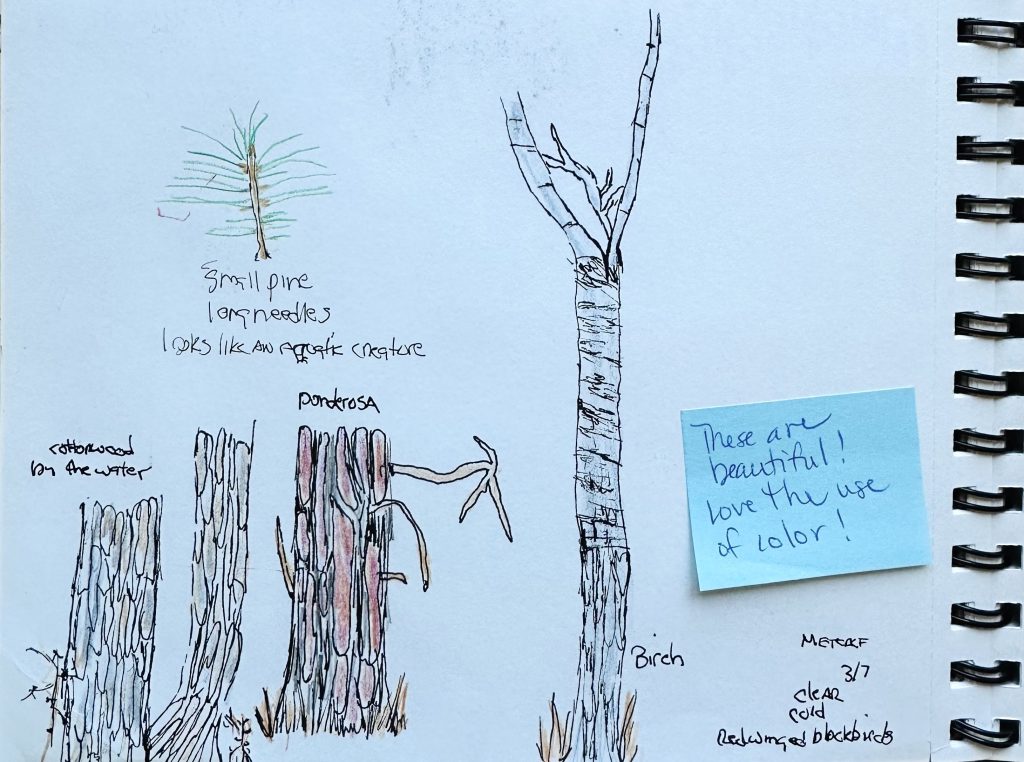 Small pine
long needles
looks like an aquatic creature
Ponderosa
cottonwood
by the water
These are
beautiful!
Love the use
of color!
Birch
Metcalf
3/7
clear
cold
Redwinged blackbirds